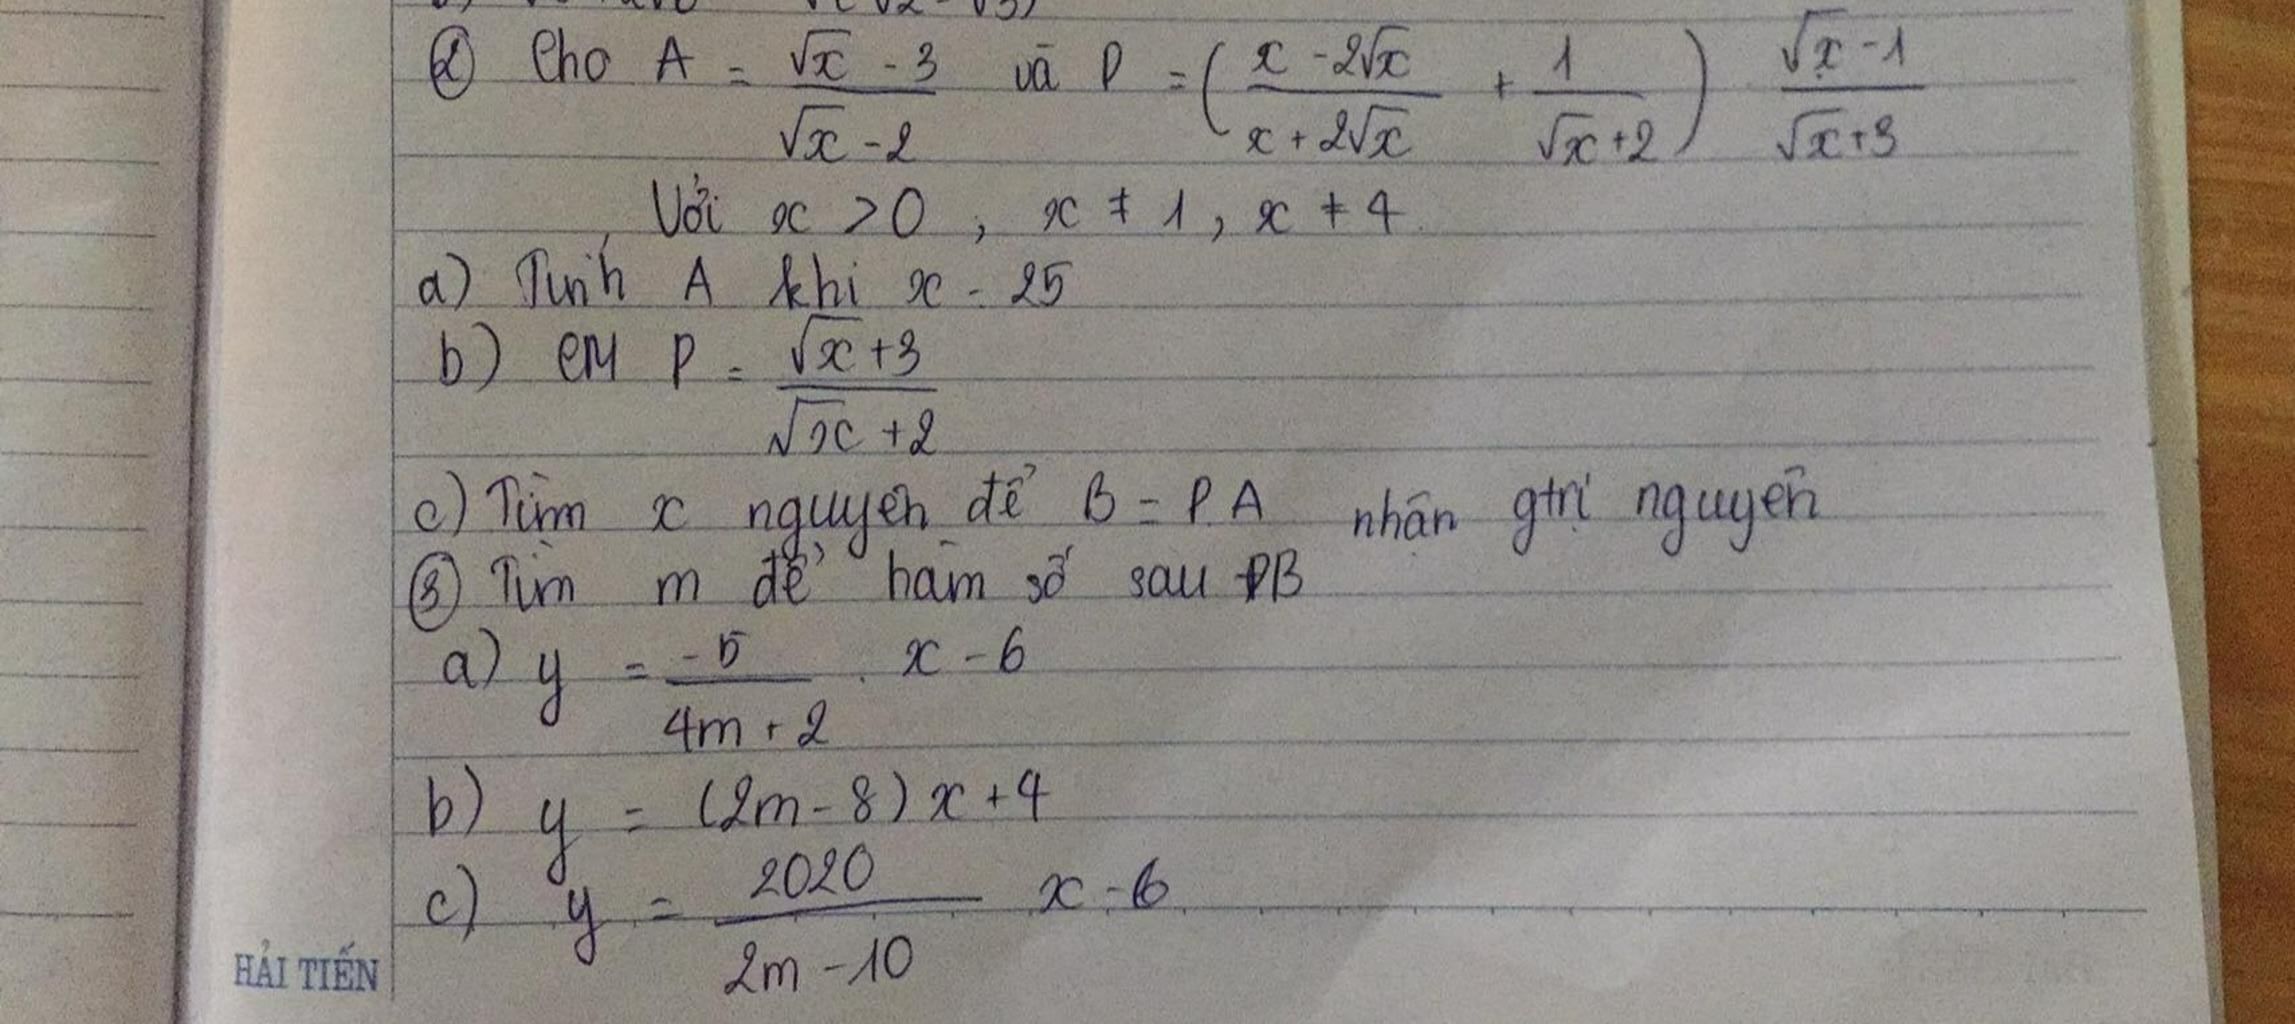 ② Cho A = (√x - 3)/(√x - 2) và P = ((x - 2√x)/(x + 2√x) + 1/(√x + 2)) (√x - 1)/(√x + 3)
Với x > 0 , x ≠ 1 , x ≠ 4
a) Tính A khi x = 25
b) CM P = (√x + 3)/(√x + 2)
c) Tìm x nguyên để B = P.A nhận gtrị nguyên
③ Tìm m để hàm số sau ĐB
a) y = -5/(4m + 2) . x - 6
b) y = (2m - 8) x + 4
c) y = 2020/(2m - 10) x - 6
HẢI TIẾN